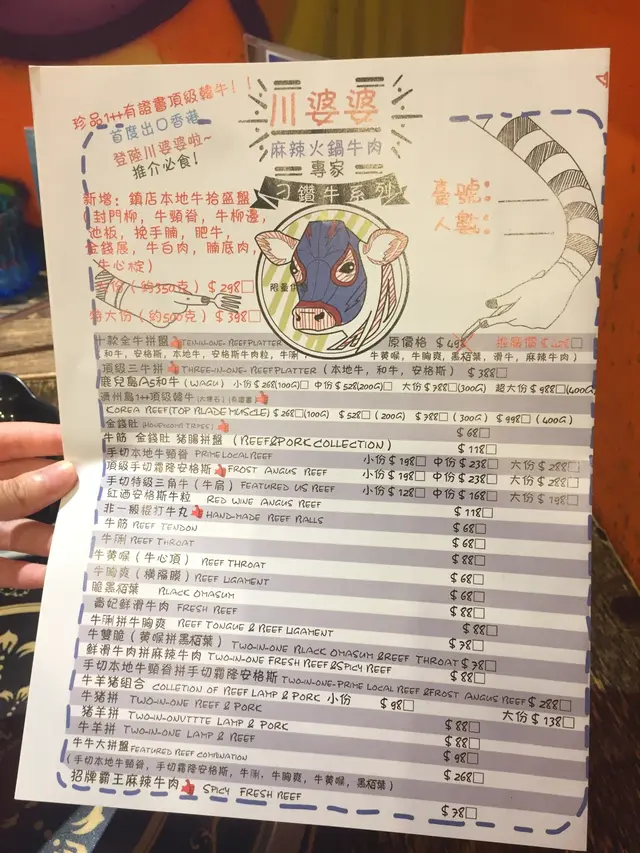 珍品1++有證書頂級韓牛!!
首度出口香港
登陸川婆婆啦~
推介必食!
川婆婆
麻辣火鍋牛肉
專家
刁鑽牛系列
臺號:
人數:
新增: 鎮店本地牛拾盛盤
(封門柳, 牛頸脊, 牛柳邊,
池板, 挽手腩, 肥牛,
金錢展, 牛白肉, 腩底肉,
牛心椗)
大份 (約350克) $298□
特大份 (約500克) $398□
限量供應
十款全牛拼盤 TEN-IN-ONE-BEEF PLATTER 原價格 $498
和牛, 安格斯, 本地牛, 安格斯牛肉粒, 牛脷, 牛黃喉, 牛胸爽, 黑栢葉, 滑牛, 麻辣牛肉)
頂級三牛拼 THREE-IN-ONE-BEEF PLATTER (本地牛, 和牛, 安格斯) $388□
鹿兒島A5和牛 (WAGU) 小份 $268(100G)□ 中份 $528(200G)□ 大份 $788□(300G) 超大份 $988□(400G)
濟州島1++頂級韓牛
KOREA BEEF(TOP BLADE MUSCLE) $268□(100G) $528□(200G) $788□(300G) $998□(400G)
金錢肚 (HONEYCOMB TRIPES) $68□
牛筋 金錢肚 豬腸拼盤 (BEEF&PORK COLLECTION) $118□
手切本地牛頸脊 PRIME LOCAL BEEF 小份 $198□ 中份 $238□ 大份 $288□
頂級手切霜降安格斯 FROST ANGUS BEEF 小份 $198□ 中份 $238□ 大份 $288□
手切特級三角牛 (牛扇) FEATURED US BEEF 小份 $128□ 中份 $168□ 大份 $198□
紅酒安格斯牛粒 RED WINE ANGUS BEEF $118□
非一般掟打牛丸 HAND-MADE BEEF BALLS $68□
牛筋 BEEF TENDON $68□
牛脷 BEEF THROAT $88□
牛黃喉 (牛心頂) BEEF THROAT $68□
牛胸爽 (橫膈膜) BEEF LIGAMENT $68□
脆黑栢葉 BLACK OMASUM $88□
貴妃鮮滑牛肉 FRESH BEEF $88□
牛脷拼牛胸爽 BEEF TONGUE & BEEF LIGAMENT $78□
牛雙脆 (黃喉拼黑栢葉) TWO-IN-ONE BLACK OMASUM &BEEF THROAT $78□
鮮滑牛肉拼麻辣牛肉 TWO-IN-ONE FRESH BEEF&SPICY BEEF $88□
手切本地牛頸脊拼手切霜降安格斯 TWO-IN-ONE-PRIME LOCAL BEEF &FROST ANGUS BEEF $288□
牛羊豬組合 COLLETION OF BEEF LAMP & PORK 小份 $98□ 大份 $138□
牛豬拼 TWO-IN-ONE BEEF & PORK $88□
豬羊拼 TWO-IN-ONVTTTE LAMP & PORK $88□
牛羊拼 TWO-IN-ONE LAMP & BEEF $98□
牛牛大拼盤 FEATURED BEEF COMBINATION $268□
(手切本地牛頸脊, 手切霜降安格斯, 牛脷, 牛胸爽, 牛黃喉, 黑栢葉)
招牌霸王麻辣牛肉 SPICY FRESH BEEF $78□